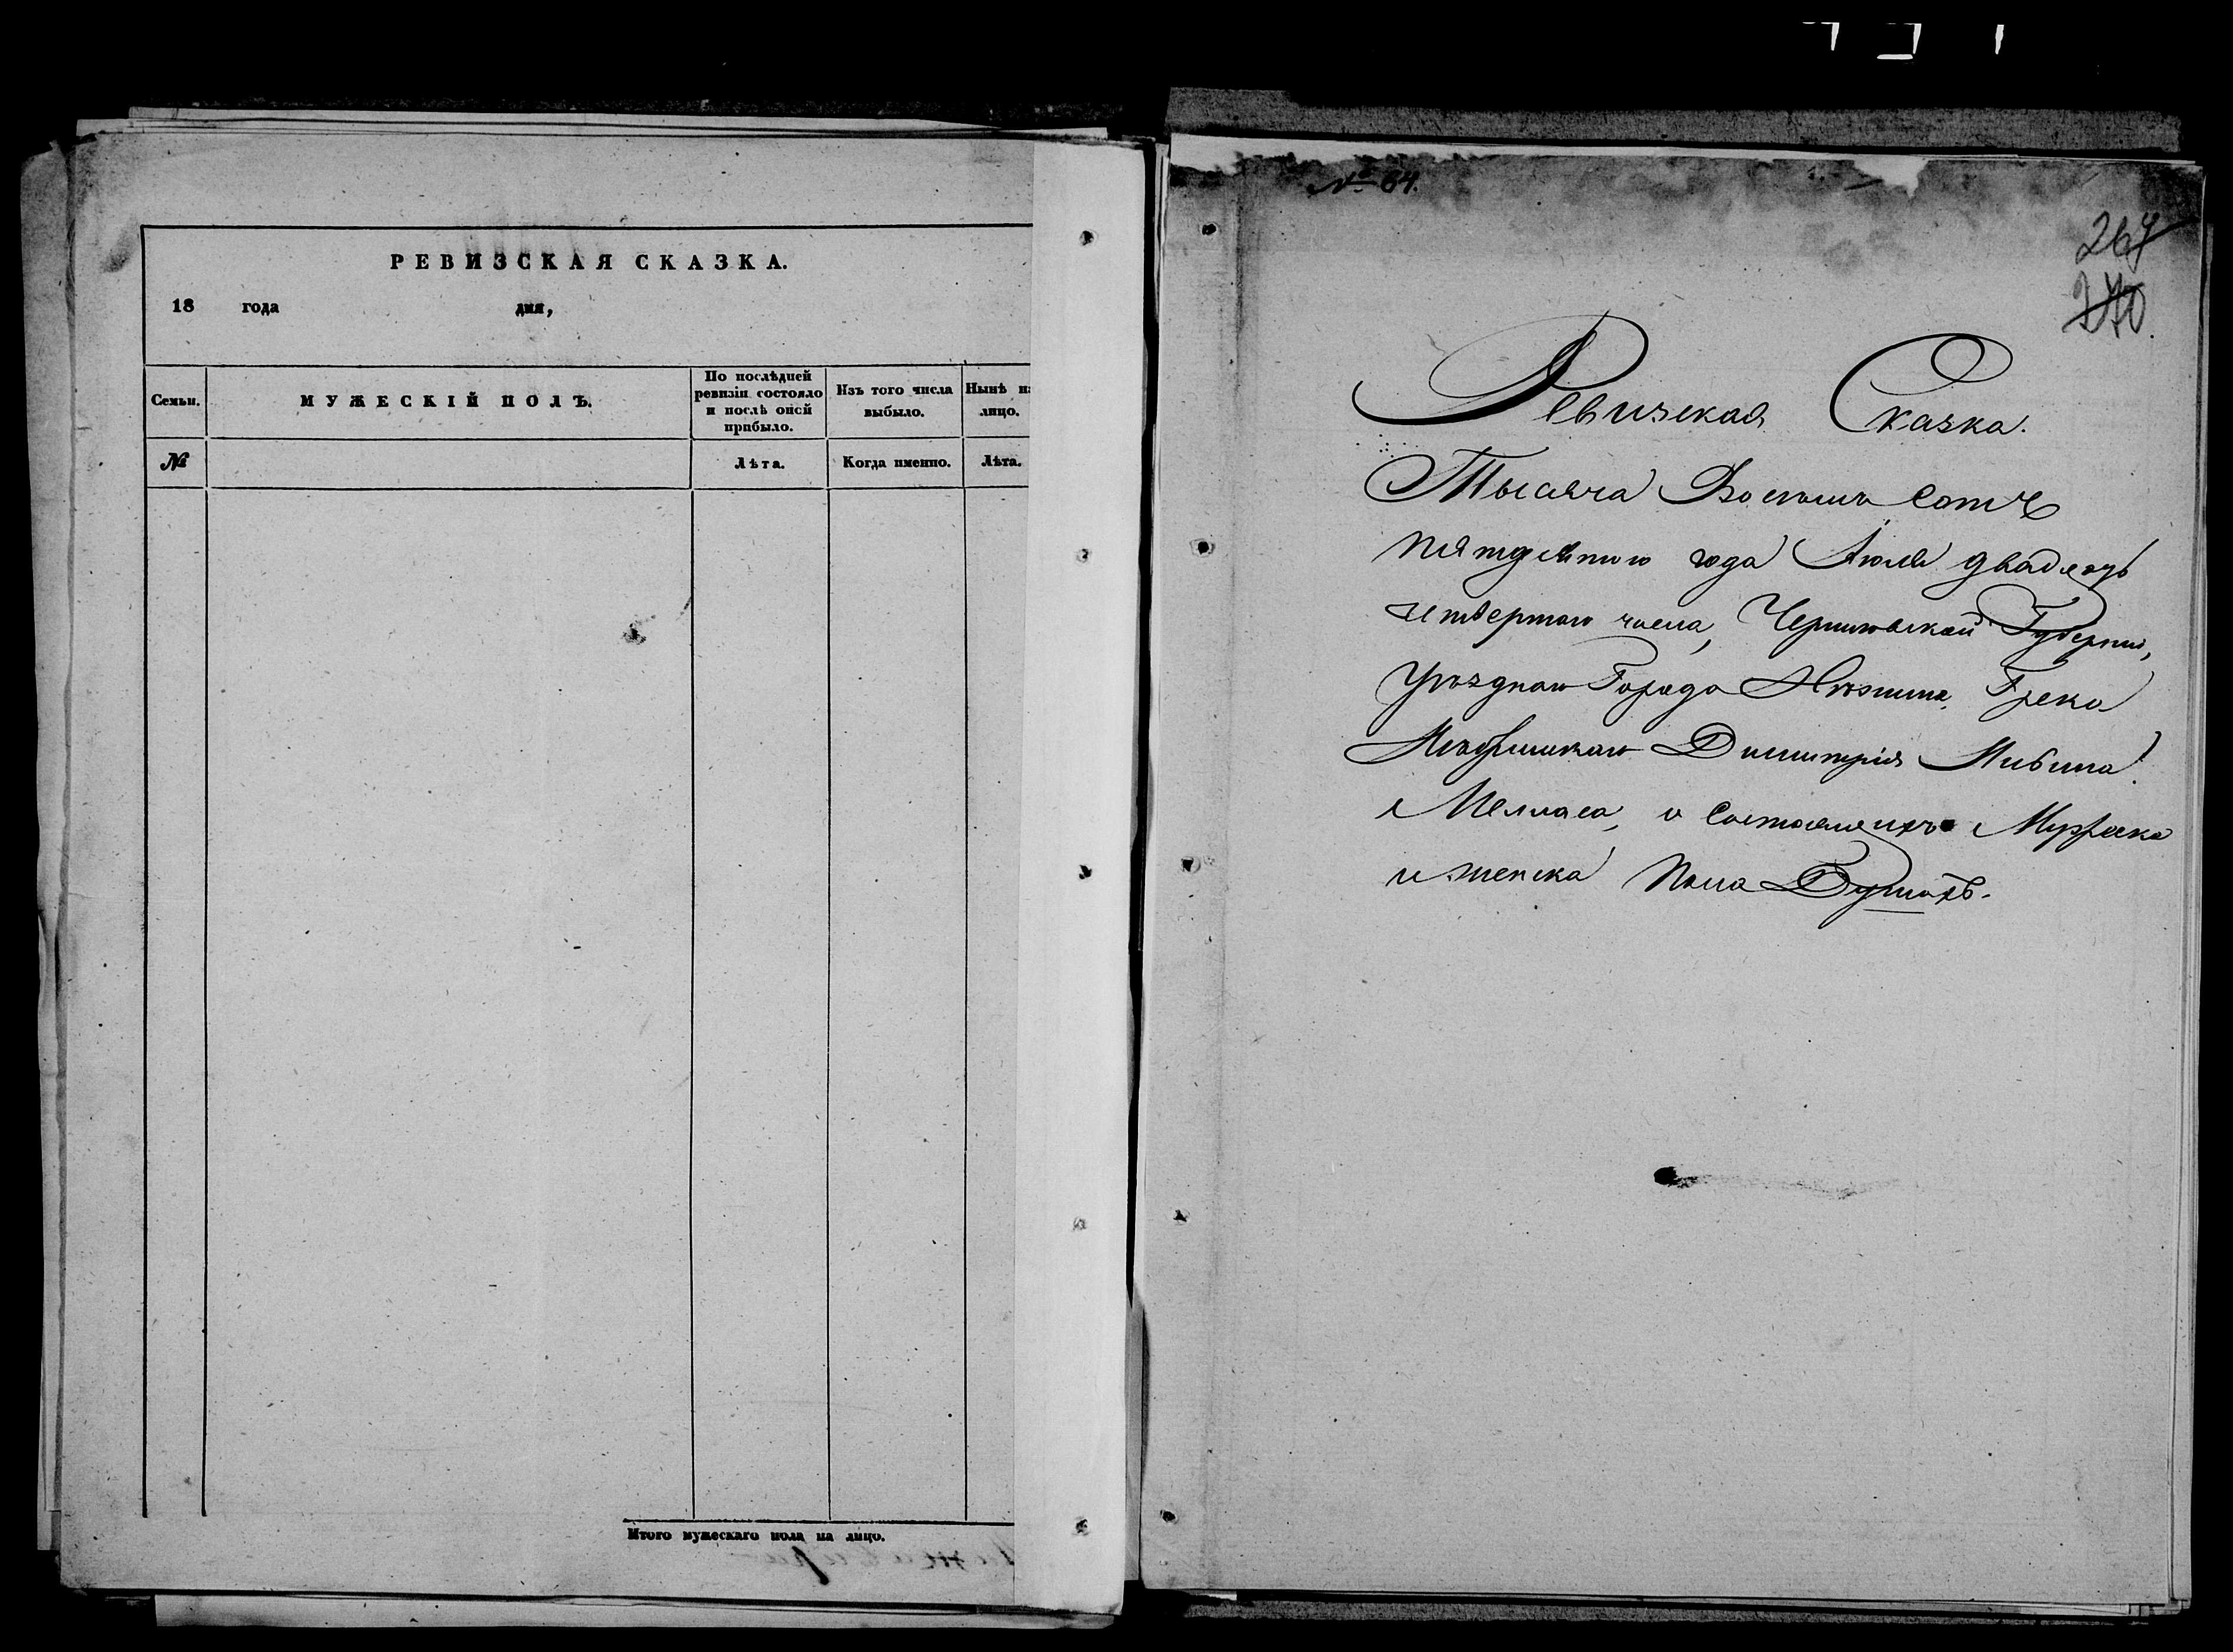 РЕВИЗСКАЯ СКАЗКА.
18 года дня,
Семьи.
МУЖЕСКІЙ ПОЛЪ.
По послѣдней
ревизіи состояло
и послѣ оной
прибыло.
Изъ того числа
выбыло.
Нынѣ на
лицо.
№
Лѣта.
Когда именно.
Лѣта.
Итого мужескаго пола на лицо.
№ 64.
267
270.
Ревизская Сказка.
Тысяча Восемь Сотъ
пятдесятого года Іюля двадцать
четвертого числа, Черниговской Губерніи,
уѣзднаго Города Нѣжина, Грека
Димитрія
Мелиса, о состоящихъ Мужеска
и женска пола Душахъ.